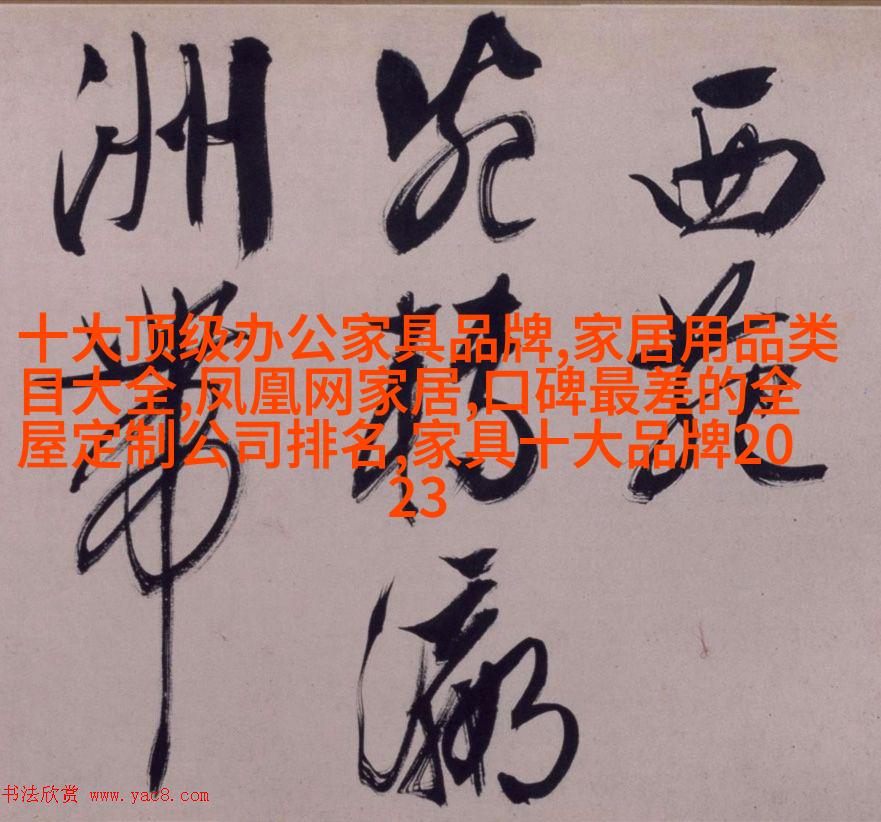 西
轉瀛
洲帶
十大顶级办公家具品牌,家居用品类
目大全,凤凰网家居,口碑最差的全
屋定制公司排名,家具十大品牌20
23
书法欣赏 www.yac8.com